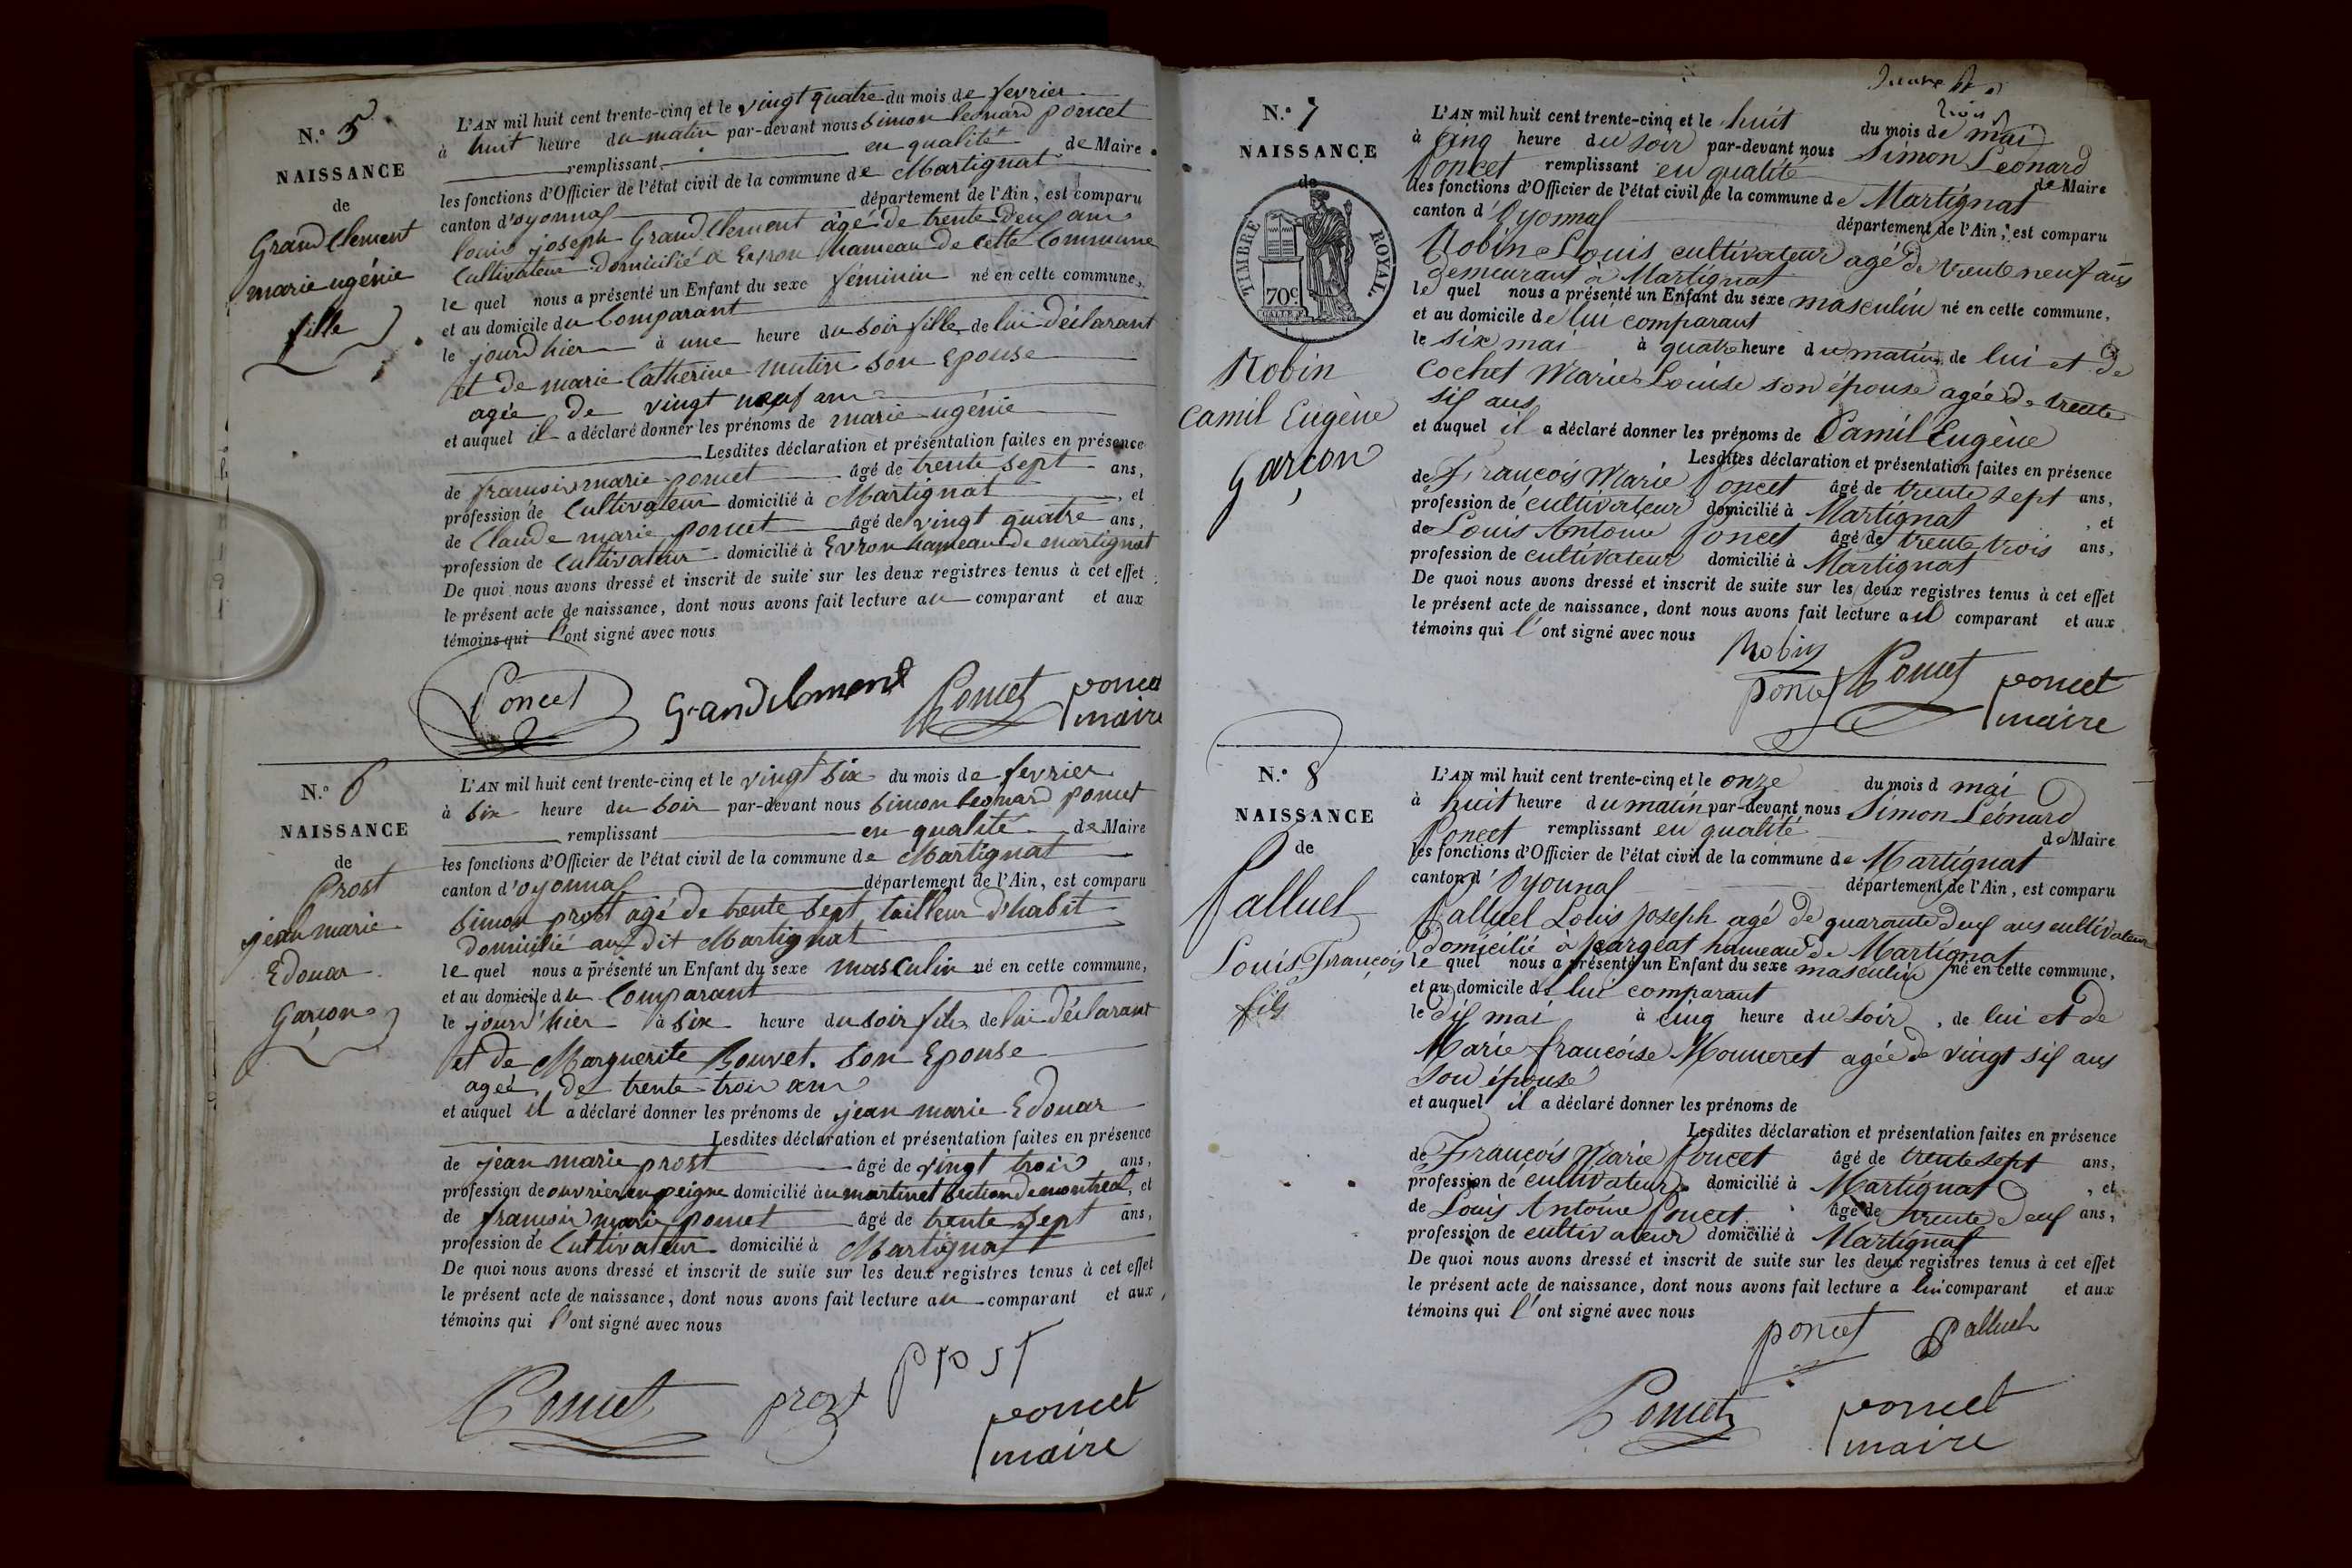 N.o 5
NAISSANCE
de
Grandclement
marie ugénie
fille
L'AN mil huit cent trente-cinq et le vingt quatre du mois de fevrier
à huit heure du matin par-devant nous Simon leonard poncet
remplissant en qualité de Maire
les fonctions d'Officier de l'état civil de la commune de Martignat
canton d'oyonnax département de l'Ain, est comparu
louis joseph Grandclement âgé de trente deux ans
Cultivateur domicilié a Evron hameau de cette Commune
le quel nous a présenté un Enfant du sexe féminin né en cette commune,
et au domicile du Comparant
le jourd'hier à une heure du soir fille de lui déclarant
et de marie Catherine mutin son Epouse
agée de vingt neuf ans
et auquel il a déclaré donner les prénoms de marie ugénie
Lesdites déclaration et présentation faites en présence
de francois marie poncet âgé de trente sept ans,
profession de Cultivateur domicilié à Martignat, et
de Claude marie poncet âgé de vingt quatre ans,
profession de Cultivateur domicilié à Evron hameau de martignat
De quoi nous avons dressé et inscrit de suite sur les deux registres tenus à cet effet
le présent acte de naissance, dont nous avons fait lecture au comparant et aux
témoins qui l'ont signé avec nous
Poncet Grandclement Poncet poncet
maire
N.o 6
NAISSANCE
de
Prost
jean marie
Edouar
Garcon
L'AN mil huit cent trente-cinq et le vingt six du mois de fevrier
à six heure du soir par-devant nous Simon leonard poncet
remplissant en qualité de Maire
les fonctions d'Officier de l'état civil de la commune de Martignat
canton d'oyonnax département de l'Ain, est comparu
Simon prost agé de trente sept tailleur d'habit
domicilié au dit Martignat
le quel nous a présenté un Enfant du sexe masculin né en cette commune,
et au domicile du Comparant
le jourd'hier à six heure du soir fils de lui déclarant
et de Marguerite Bouvet son Epouse
ageé de trente trois ans
et auquel il a déclaré donner les prénoms de jean marie Edouar
Lesdites déclaration et présentation faites en présence
de jean marie prost âgé de vingt trois ans,
profession de ouvrier en peigne domicilié à martinet section de montréal, et
de francois marie poncet âgé de trente sept ans,
profession de Cultivateur domicilié à Martignat
De quoi nous avons dressé et inscrit de suite sur les deux registres tenus à cet effet
le présent acte de naissance, dont nous avons fait lecture au comparant et aux
témoins qui l'ont signé avec nous
Poncet prost prost
poncet
maire
N.o 7
NAISSANCE
de
TIMBRE ROYAL.
70c
Robin
Camil Eugène
Garçon
L'AN mil huit cent trente-cinq et le huit du mois de mai
à cinq heure du soir par-devant nous Simon Leonard
Poncet remplissant en qualité de Maire
les fonctions d'Officier de l'état civil de la commune de Martignat
canton d'Oyonnax département de l'Ain, est comparu
Robin Louis cultivateur agé de trente neuf ans
demeurant à Martignat
le quel nous a présenté un Enfant du sexe masculin né en cette commune,
et au domicile de lui comparant
le six mai à quatre heure du matin de lui et de
Cochet Marie Louise son épouse agée de trente
six ans
et auquel il a déclaré donner les prénoms de Camil Eugène
Lesdites déclaration et présentation faites en présence
de François Marie Poncet âgé de trente sept ans,
profession de cultivateur domicilié à Martignat, et
de Louis Antoine Poncet âgé de trente trois ans,
profession de cultivateur domicilié à Martignat
De quoi nous avons dressé et inscrit de suite sur les deux registres tenus à cet effet
le présent acte de naissance, dont nous avons fait lecture au comparant et aux
témoins qui l'ont signé avec nous
Robin
poncet Poncet poncet
maire
N.o 8
NAISSANCE
de
Palluel
Louis François
fils
L'AN mil huit cent trente-cinq et le onze du mois d mai
à huit heure du matin par-devant nous Simon Léonard
Poncet remplissant en qualité de Maire
les fonctions d'Officier de l'état civil de la commune de Martignat
canton d'Oyonnax département de l'Ain, est comparu
Palluel Louis Joseph agé de quarante deux ans cultivateur
domicilié à pargeat hameau de Martignat
le quel nous a présenté un Enfant du sexe masculin né en cette commune,
et au domicile de lui comparant
le dix mai à cinq heure du soir, de lui et de
Marie françoise Monneret agée de vingt six ans
son épouse
et auquel il a déclaré donner les prénoms de
Lesdites déclaration et présentation faites en présence
de François Marie Poncet âgé de trente sept ans,
profession de cultivateur domicilié à Martignat, et
de Louis Antoine Poncet âgé de trente deux ans,
profession de cultivateur domicilié à Martignat
De quoi nous avons dressé et inscrit de suite sur les deux registres tenus à cet effet
le présent acte de naissance, dont nous avons fait lecture a lui comparant et aux
témoins qui l'ont signé avec nous
poncet Palluel
Poncet poncet
maire